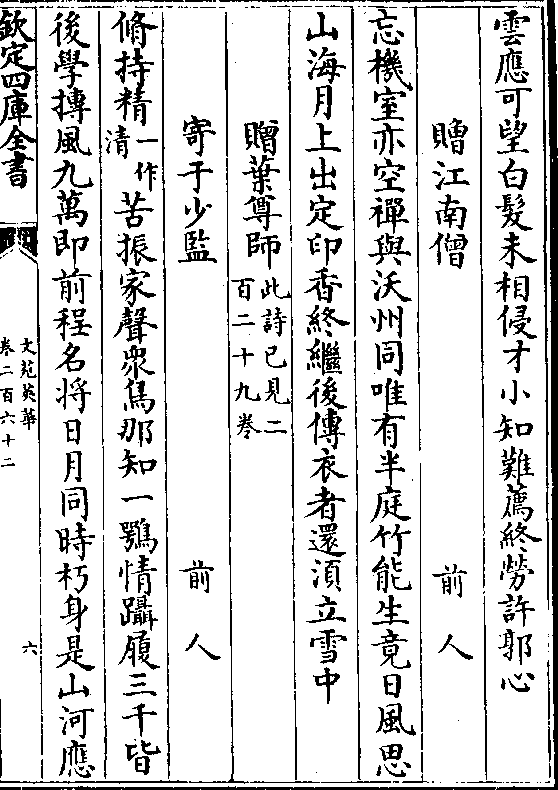 雲應可望白髮未相侵才小知難薦終勞許郭心
贈江南僧　前人
忘機室亦空禪與沃州同唯有半庭竹能生竟日風思
山海月上出定印香終繼後傳衣者還湏立雪中
贈葉尊師此詩已見二百二十九卷
寄于少監　前人
脩持精一作清苦振家聲衆鳥那知一鶚情躡履三千皆
後學摶風九萬即前程名将日月同時朽身是山河應
欽定四庫全書
文苑英華
卷二百六十二
六